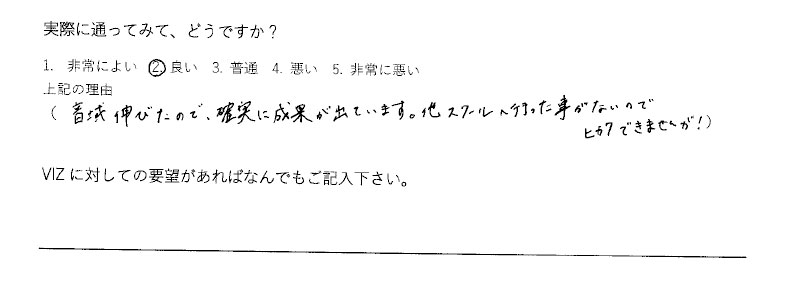 実際に通ってみて、どうですか？
1. 非常によい ②良い 3. 普通 4. 悪い 5. 非常に悪い
上記の理由
（音域伸びたので、確実に成果が出ています。他スクールへ行った事がないので
ヒカクできませんが！）
VIZに対しての要望があればなんでもご記入下さい。